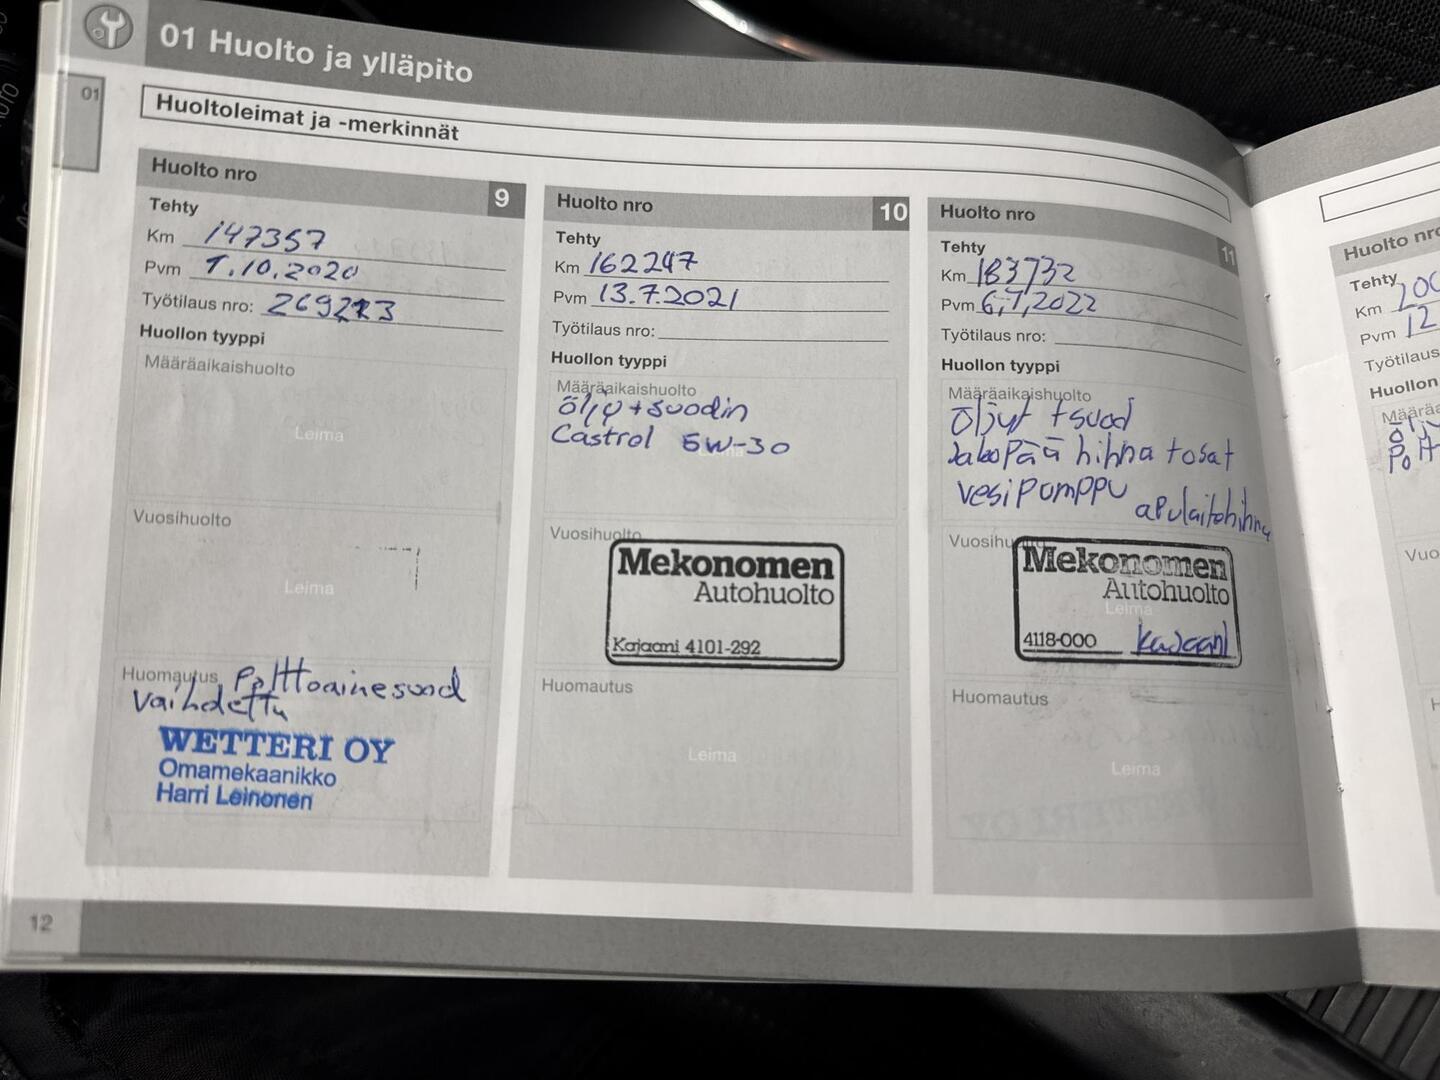 01 Huolto ja ylläpito
01
Huoltoleimat ja -merkinnät
Huolto nro 9
Tehty
Km 147357
Pvm 1.10.2020
Työtilaus nro:
Huollon tyyppi
Määräaikaishuolto
Leima
Vuosihuolto
Leima
Huomautus Polttoainesuod
vaihdettu
WETTERI OY
Omamekaanikko
Harri Leinonen
Huolto nro 10
Tehty
Km 162247
Pvm 13.7.2021
Työtilaus nro:
Huollon tyyppi
Määräaikaishuolto
öljy + suodin
Castrol 5W-30
Vuosihuolto
Mekonomen
Autohuolto
Kajaani 4101-292
Huomautus
Leima
Huolto nro 11
Tehty
Km 183732
Pvm 6,7,2022
Työtilaus nro:
Huollon tyyppi
Määräaikaishuolto
öljyt + suod
Jakopää hihna tosat
vesipumppu apulaitehihna
Mekonomen
Autohuolto
Leima
4118-000 Kajaani
Huomautus
Leima
Huolto nro
Tehty
Km 200
Pvm 12
Työtilaus
Huollon
12